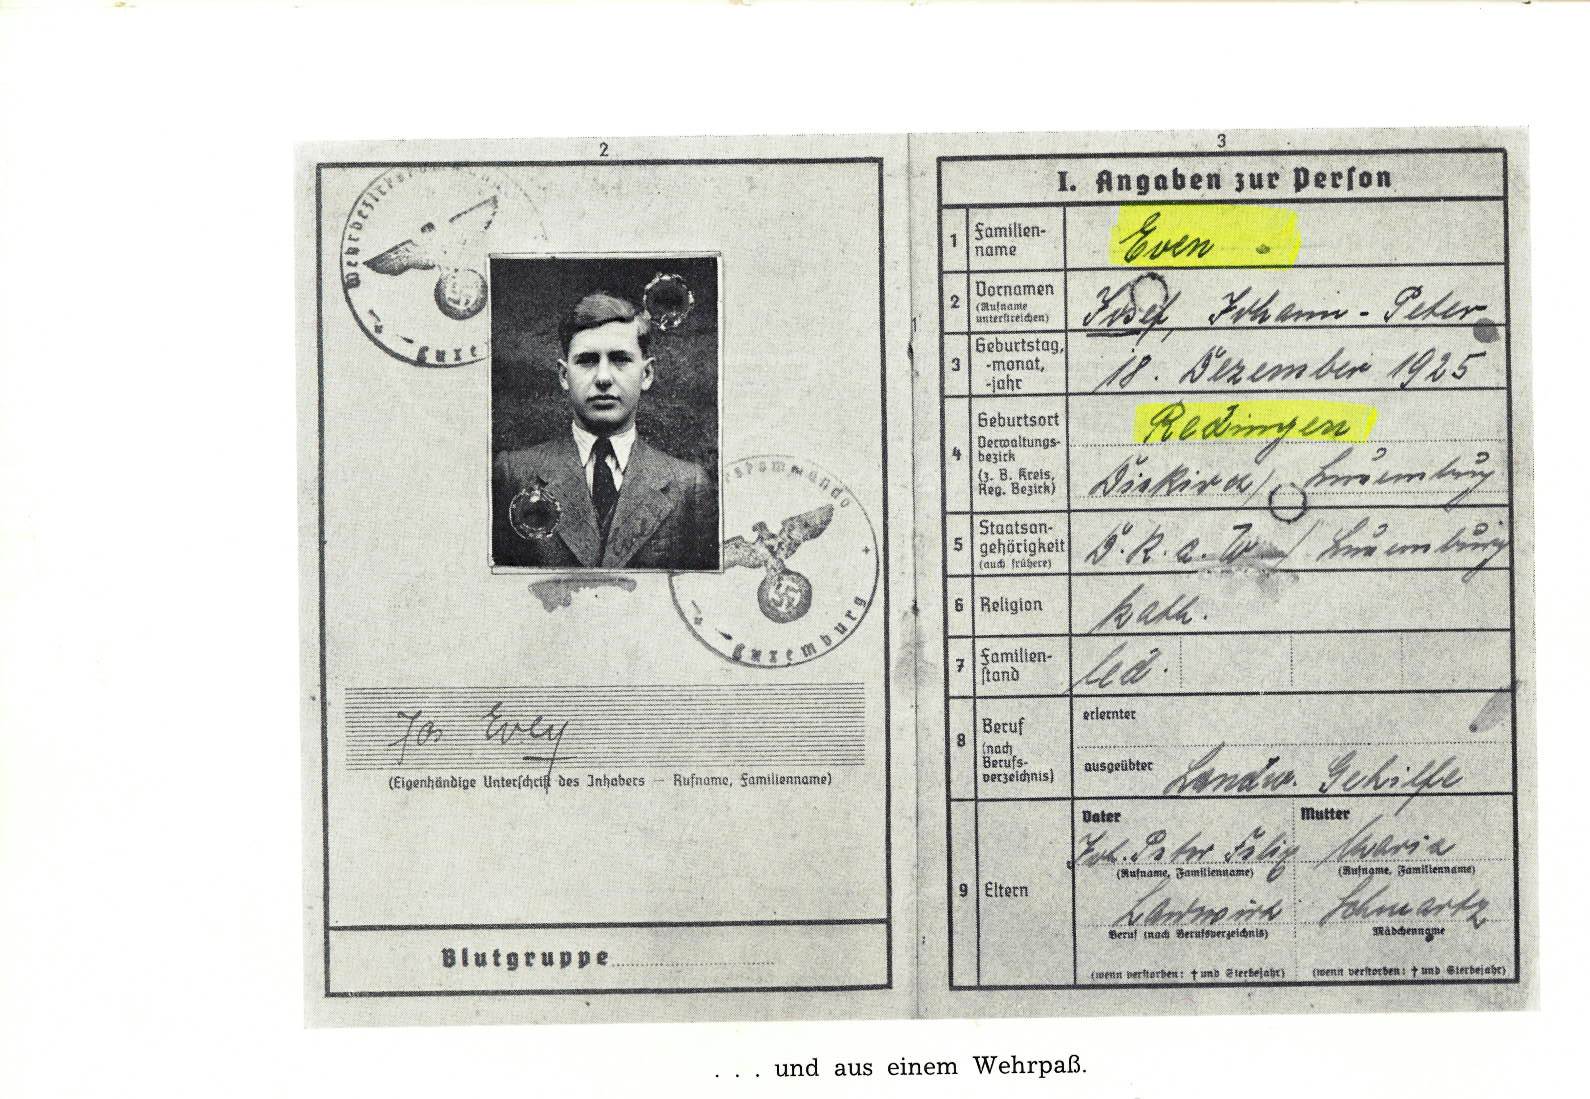 2
Wehrbezirkskommando
Luxemburg
Jos Even
(Eigenhändige Unterschrift des Inhabers — Rufname, Familienname)
Blutgruppe
3
I. Angaben zur Person
1 Familien-
name
Even
2 Vornamen
(Rufname
unterstreichen)
Josef, Johann - Peter
3 Geburtstag,
-monat,
-jahr
18. Dezember 1925
4 Geburtsort
Verwaltungs-
bezirk
(z. B. Kreis,
Reg. Bezirk)
Redingen
Diekirch / Luxemburg
5 Staatsan-
gehörigkeit
(auch frühere)
D. R. a. W / Luxemburg
6 Religion
kath.
7 Familien-
stand
led.
8 Beruf
(nach
Berufs-
verzeichnis)
erlernter
ausgeübter Landw. Gehilfe
9 Eltern
Vater Mutter
Joh. Peter Maria
(Rufname, Familienname) (Rufname, Familienname)
Landwirt Schwartz
Beruf (nach Berufsverzeichnis) Mädchenname
(wenn verstorben: † und Sterbejahr) (wenn verstorben: † und Sterbejahr)
. . . und aus einem Wehrpaß.